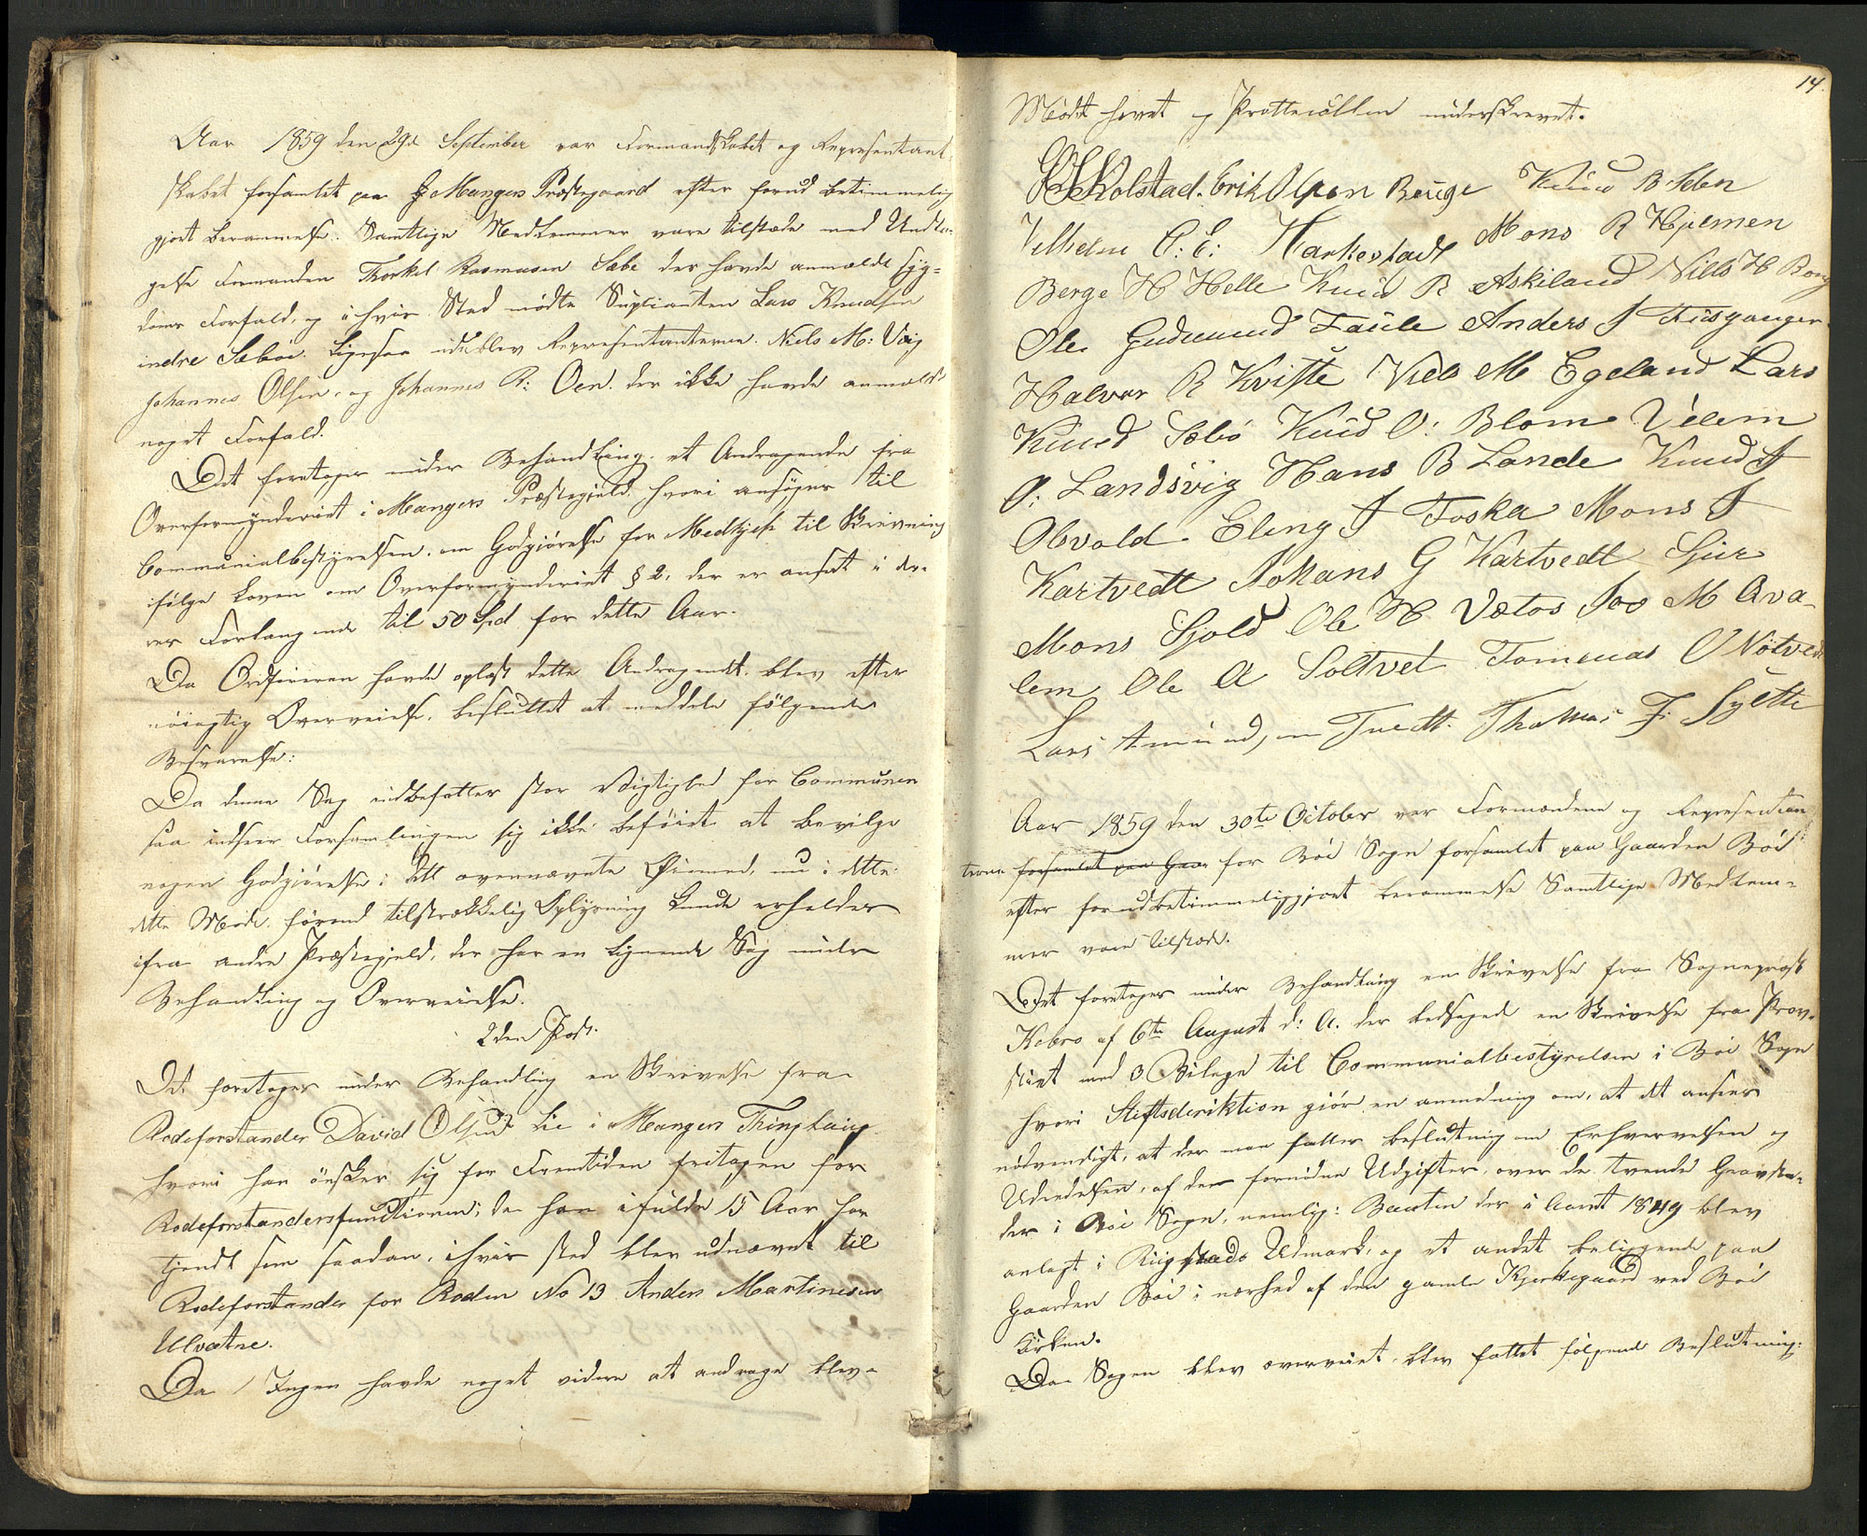 Aar 1859 den 29de September var Formandskabet og Repræsentant-
skabet forsamlet paa Mangers Præstegaard efter forud betimmelig
gjort Berammelse. Samtlige Medlemmer vare tilstæde med Undta-
gelse Formanden Thorkel Rasmusen Sæbø der havde anmeldt Syg-
doms Forfald, og i hvis Sted mødte Suplianten Lars Knudsen
indre Sæbøe. Ligesaa udeblev Repræsentanterne Niels M:
Johannes Olsen, og Johannes R: Oen. der ikke havde anmeldt
noget Forfald.
Det foretoges under Behandling et Andragende fra
Overformynderiet i Mangers Præstegjeld, hvori ansøges til
Communialbestyrelsen om Godtgjørelse for Medhjelp til Skrivning
ifølge Loven om Overformynderiet § 2, der er ansat i de-
res Forlangende til 50 Spd for dette Aar.
Da Ordføreren havde oplæst dette Andragende, blev efter
nøiagtig Overveielse, besluttet at meddele følgende
Besvarelse:
Da denne Sag indbefatter stor Vigtighed for Communen
saa indseer Forsamlingen sig ikke beføiet at bevilge
nogen Godtgjørelse i det ovennævnte Øiemed, nu i dette
dette Møde, førend tilstrækkelig Oplysning kunde erholdes
ifra andre Præstegjeld, der har en lignende Sag under
Behandling og Overveielse.
2den Post.
Det foretoges under Behandling en Skrivelse fra
Rodeforstander David Olsen Lie i Mangers Thinglaug
hvori han ønsker sig for Fremtiden fritagen for
Rodeforstandersfunctionen; da han i fulde 15 Aar har
tjendt som saadan, i hvis sted blev udnævnt til
Rodeforstander for Roden No 13 Anders Martinesen
Ulvatne.
Da Ingen havde noget videre at andrage blev
14.
Mødet hævet og Protteıollen underskrevet.
Kolstad. Erik Olsen Bouge Knud B Selen
Vilhelm O: E: Harkestad Mons R Hjelmen
Berge H Helle Knud R Askiland Niels H Borg
Ole Gudmund Faule Anders J Fidsganger
Halvor R Kviste Niels M Egeland Lars
Knud Sæbø Knud O: Blom Velem
O: Landsvig Hans B Lande Knud J
Obvold Eling J Toska Mons J
Kartvedt Johans G Kartvedt Sjur
Mons Sjold Ole H Vatos Joo M Ava-
lem Ole A Soltvet Tomenas O Nøtvedt
Lars Amundsen Tvedt. Thomas F: Sylte
Aar 1859 den 30te October var Formændene og Representan
terne forsamlet paa Gaar for Bøe Sogn forsamlet paa Gaarden Bøe
efter forudbetimmeliggjort berammelse Samtlige Medlem-
mer vare tilstæde.
Det foretoges under Behandling en Skrivelse fra Sogneprest
Kobro af 6te August d: A. der ledsagede en Skrivelse fra Prov-
stiet med 3 Bilage til Communialbestyrelsen i Bøe Sogn
hvori Stiftsderiktion gjør en anmodning om, at det ansees
nødvendigt, at der man fatter beslutning om Erhvervelsen og
Udredelsen, af den fornødne Udgifter, over de tvende Gravste-
der i Bøe Sogn, nemlig: der i Aaret 1849 blev
anlagt i Riigstads Udmark, og et andet beliggende paa
Gaarden Bøe i nærhed af den gamle Kjerkegaard ved Bøe
Kirken.
Da Sagen blev overveiet, blev fattet følgende Beslutning: